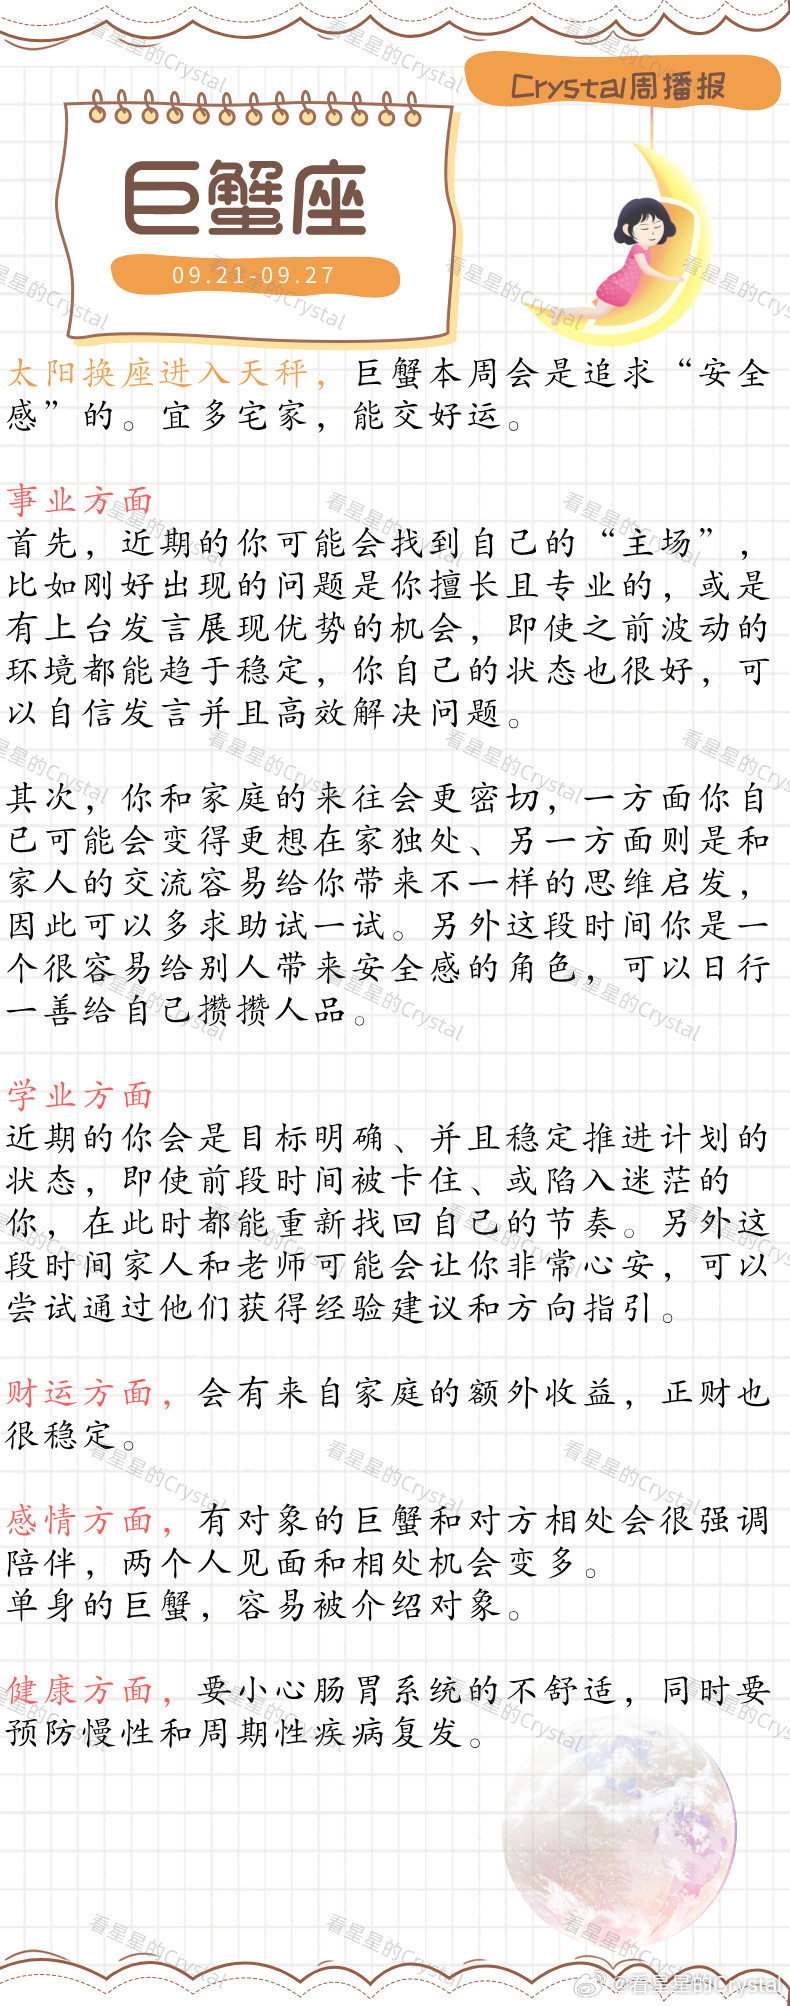 Crystal周播报
巨蟹座
09.21-09.27
太阳换座进入天秤，巨蟹本周会是追求“安全
感”的。宜多宅家，能交好运。
事业方面
首先，近期的你可能会找到自己的“主场”，
比如刚好出现的问题是你擅长且专业的，或是
有上台发言展现优势的机会，即使之前波动的
环境都能趋于稳定，你自己的状态也很好，可
以自信发言并且高效解决问题。
其次，你和家庭的来往会更密切，一方面你自
已可能会变得更想在家独处、另一方面则是和
家人的交流容易给你带来不一样的思维启发，
因此可以多求助试一试。另外这段时间你是一
个很容易给别人带来安全感的角色，可以日行
一善给自己攒攒人品。
学业方面
近期的你会是目标明确、并且稳定推进计划的
状态，即使前段时间被卡住、或陷入迷茫的
你，在此时都能重新找回自己的节奏。另外这
段时间家人和老师可能会让你非常心安，可以
尝试通过他们获得经验建议和方向指引。
财运方面，会有来自家庭的额外收益，正财也
很稳定。
感情方面，有对象的巨蟹和对方相处会很强调
陪伴，两个人见面和相处机会变多。
单身的巨蟹，容易被介绍对象。
健康方面，要小心肠胃系统的不舒适，同时要
预防慢性和周期性疾病复发。
@看星星的Crystal